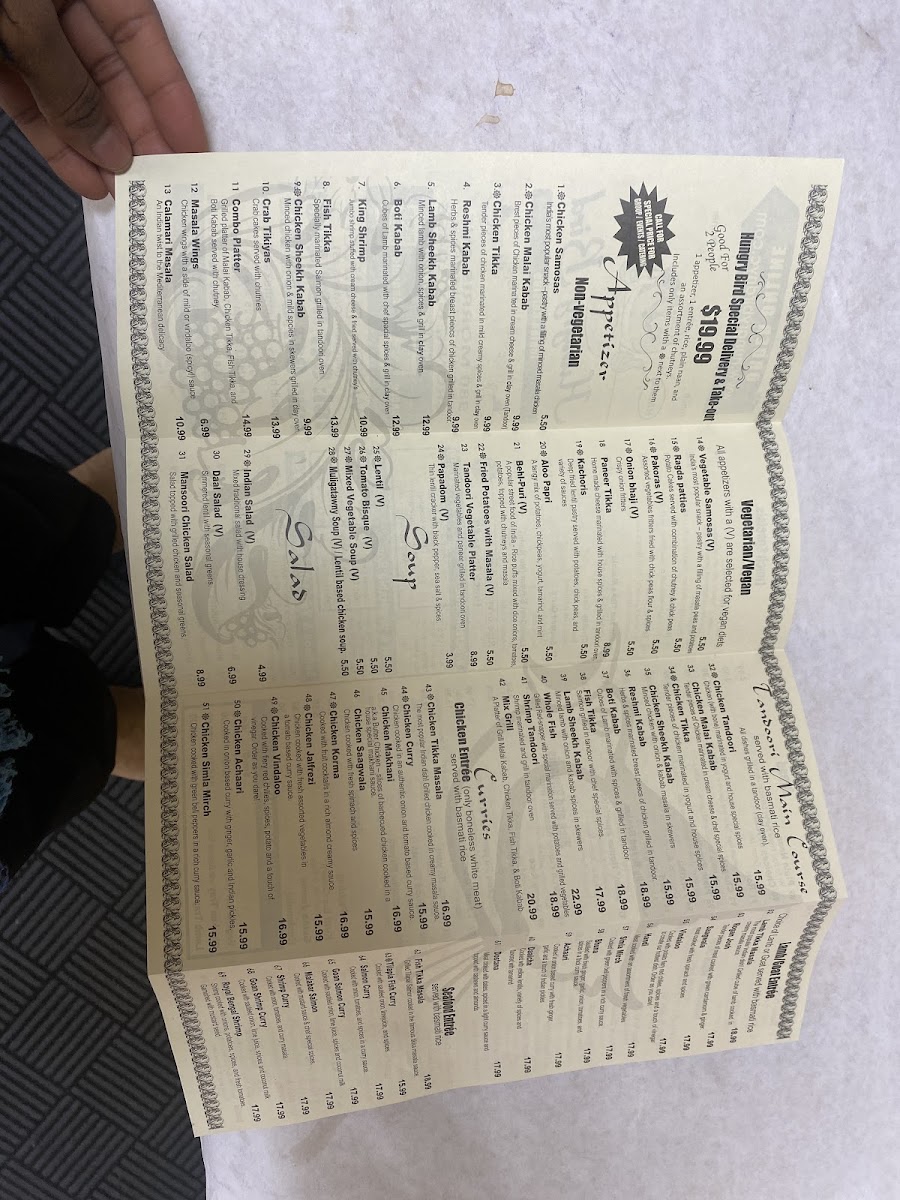 Hungry Bird Special Delivery & Take-out
$19.99
Good For
2 People
1 appetizer, 1 entrée, rice, plain naan, and
an assortment of chutneys.
Includes only items with a ❁ next to them
CALL FOR
SPECIAL PRICE FOR
GROUP / EVENTS / CATERING
Appetizer
Non-vegetarian
1.❁ Chicken Samosas 5.50
India's most popular snack – pastry with a filling of minced masala chicken
2.❁ Chicken Malai Kabab 9.99
Brest pieces of Chicken marinated in cream cheese & grill in clay oven (Tandoor)
3.❁ Chicken Tikka 9.99
Tender pieces of chicken marinated in mild creamy spices & grill in clay oven
4. Reshmi Kabab 9.99
Herbs & spices marinated breast pieces of chicken grilled in tandoor
5. Lamb Sheekh Kabab 12.99
Minced lamb with onion, spices & grill in clay oven.
6. Boti Kabab 12.99
Cubes of lamb marinated with chef special spices & grill in clay oven
7. King Shrimp 10.99
Jumbo shrimp stuffed with cream cheese & fried served with chutneys
8. Fish Tikka 13.99
Specially marinated Salmon grilled in tandoori oven.
9.❁ Chicken Sheekh Kabab 9.99
Minced chicken with onion & mild spices in skewers grilled in clay oven.
10. Crab Tikiyas 13.99
Crab cakes served with chutnies
11 Combo Platter 14.99
Grilled platter of Malai Kabab, Chicken Tikka, Fish Tikka, and
Boti Kabab served with chutney.
12 Masala Wings 6.99
Chicken wings with a side of mild or vindaloo (spicy) sauce.
13 Calamari Masala 10.99
An Indian twist to the Mediterranean delicacy
Vegetarian/Vegan
All appetizers with a (V) are selected for vegan diets
14 ❁ Vegetable Samosas (V) 5.50
India's most popular snack - pastry with a filling of masala peas and potatoes
15 ❁ Ragda patties 5.50
Potato Cakes served with combination of chutney & chick peas
16 ❁ Pakoras (V) 5.50
Assorted vegetables fritters fried with chick peas flour & spices
17 ❁ Onion bhaji (V) 5.50
Crispy onion fritters
18 Paneer Tikka 8.99
Home made cheese marinated with house spices & grilled in tandoori oven
19 ❁ Kachoris 5.50
Deep fried lentil pastry served with potatoes, chick peas, and
variety of sauces
20 ❁ Aloo Papri 5.50
A tangy mix of potatoes, chickpeas, yogurt, tamarind, and mint
21 Behl-Puri (V) 5.50
A popular street food of India - Rice puffs mixed with dice onions, tomatoes,
potatoes, topped with chutneys and masala
22 ❁ Fried Potatoes with Masala (V) 5.50
23 Tandoori Vegetable Platter 8.99
Marinated vegetables and paneer grilled in tandoori oven
24 ❁ Papadom (V) 3.99
Thin lentil cracker with black pepper, sea salt & spices
Soup
25 ❁ Lentil (V) 5.50
26 ❁ Tomato Bisque (V) 5.50
27 ❁ Mixed Vegetable Soup (V) 5.50
28 ❁ Muligatawny Soup (V) / Lentil based chicken soup. 5.50
Salad
29 ❁ Indian Salad (V) 4.99
Mixed traditional salad with house dressing
30 Daal Salad (V) 6.99
Simmered lentil with seasonal greens
31 Mansoori Chicken Salad 8.99
Salad topped with grilled chicken and seasonal greens.
Tandoori Main Course
served with basmati rice
All dishes grilled in a tandoor (clay oven).
32 ❁ Chicken Tandoori 15.99
Chicken (with bone) marinated in yogurt and house special spices
33 Chicken Malai Kabab 15.99
Tender pieces of Chicken marinated in cream cheese & chef special spices
34 ❁ Chicken Tikka 15.99
Tender pieces of chicken marinated in yogurt and house spices
35 Chicken Sheekh Kabab 15.99
Minced chicken with onion & kabab masala in skewers
36 Reshmi Kabab 18.99
Herbs & spices marinated breast pieces of chicken grilled in tandoor
37 Boti Kabab 18.99
Cubes of Lamb marinated with spices & grilled in tandoor
38 Fish Tikka 17.99
Salmon grilled in tandoor with chef special spices
39 Lamb Sheekh Kabab 22.99
Minced lamb with onion and kabab spices in skewers
40 Whole Fish 18.99
Grilled fresh snapper with special marination served with potatoes and grilled vegetables
41 Shrimp Tandoori 20.99
Shrimp marinated and grill in tandoor oven
42 Mix Grill
A Platter of Grill Malai Kabab, Chicken Tikka, Fish Tikka, & Boti Kabab
Curries
Chicken Entrée (only boneless white meat)
served with basmati rice
43 ❁ Chicken Tikka Masala 16.99
The most popular Indian dish! Grilled chicken cooked in creamy masala sauce
44 ❁ Chicken Curry 15.99
Chicken cooked in an authentic onion and tomato based curry sauce.
45 Chicken Makhani 16.99
a.k.a Butter Chicken – slices of barbecued chicken cooked in a
house special makhani sauce.
46 Chicken Saagwala 15.99
Chicken cooked with fresh spinach and spices
47 ❁ Chicken Korma 16.99
Cooked with fruit cocktails in a rich almond creamy sauce
48 ❁ Chicken Jalfrezi 15.99
Chicken cooked with fresh assorted vegetables in
a tomato based curry sauce.
49 ❁ Chicken Vindaloo 16.99
Cooked with fiery red chilies, spices, potato and a touch of
vinegar. Order as you dare!
50 ❁ Chicken Achaari 15.99
Cooked in onion based curry with ginger, garlic and Indian pickles,
51 ❁ Chicken Simla Mirch 15.99
Chicken cooked with green bell peppers in a rich curry sauce.
Lamb/Goat Entrée
Choice of Lamb or Goat served with basmati rice
52 Lamb Tikka Masala 18.99
53 Rogan Josh 17.99
54 Saagwala 17.99
55 Vindaloo 17.99
56 Handi 17.99
57 Simla Mirch 17.99
58 Bhuna 17.99
59 Achaari 17.99
60 Dalcha 17.99
61 Dostana 17.99
Seafood Entrée
served with basmati rice
62 Fish Tikka Masala 18.99
63 ❁ Tilapia Fish Curry 15.99
64 Salmon Curry 17.99
65 Goan Salmon Curry 17.99
66 Malabar Salmon 17.99
67 Shrimp Curry 17.99
68 Goan Shrimp Curry 17.99
69 Royal Bengal Shrimp 17.99